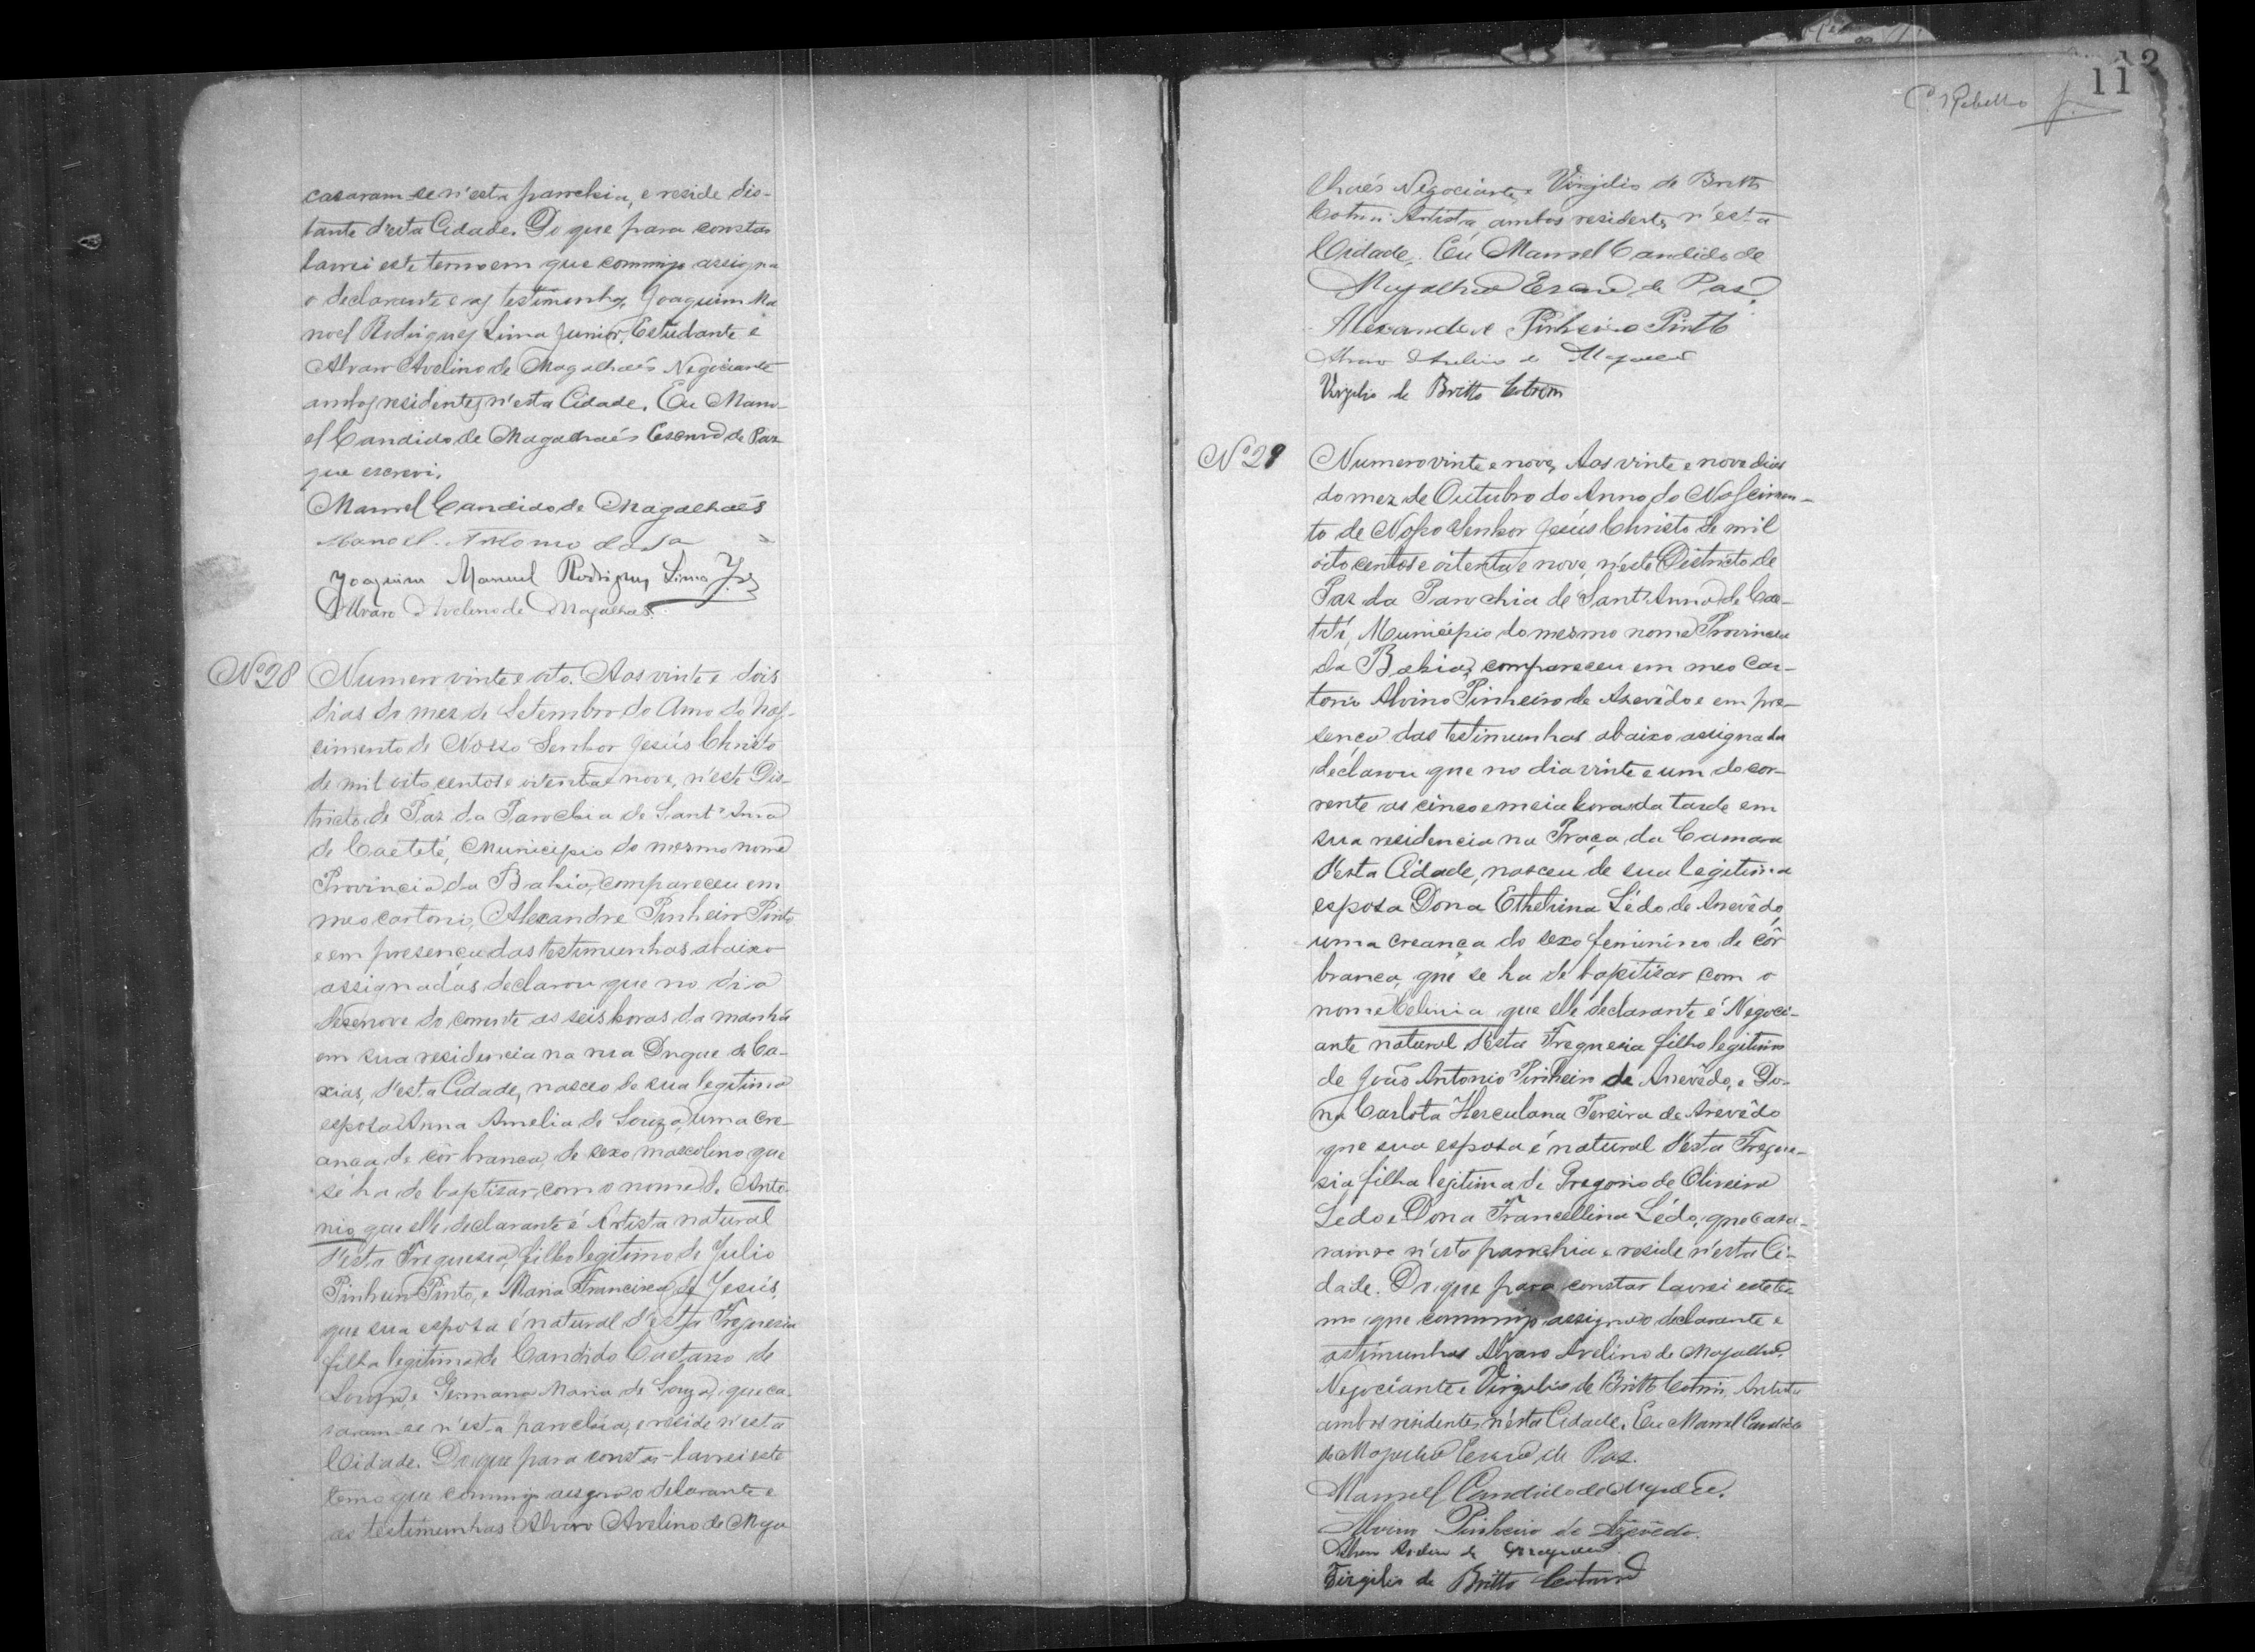 casaram-se n'esta parochia, e reside dis-
tante d'esta Cidade. Do que para constar
lavrei este termo em que commigo assigna
o declarante e as testimunhas, Joaquim Ma
noel Rodrigues Lima Junior, Estudante e
Alvaro Avelino de Magalhaés Negociante
ambos residentes n'esta Cidade. Eu Mano-
el Candido de Magalhaés Escrivão de Paz
que escrevi.
Manoel Candido de Magalhaés
Manoel Antonio
Joaquim Manuel Rodrigues Lima Jr
Alvaro Avelino de Magalhães
Nº 28 Numero vinte e oito. Aos vinte e dois
dias do mez de Setembro do Anno do Nas-
cimento de Nosso Senhor Jesús Christo
de mil oito centos e oitenta e nove, n'este Dis-
tricto de Paz da Parochia de Sant'Anna
de Caeteté, Municipio do mesmo nome
Provincia da Bahia, compareceu em
meo cartorio, Alexandre Pinheiro Pinto
e em presença das testimunhas abaixo
assignadas declarou que no dia
desenove do corrente as seis horas da manhã
em sua residencia na rua Duque de Ca-
xias, d'esta Cidade, nasceo de sua legitima
esposa Anna Amelia de Souza, uma cre-
ança de côr branca, de sexo mascolino que
se ha de baptisar, com o nome de Anto-
nio que elle declarante é Artista natural
d'esta Freguesia, filho legitimo de Julio
Pinheiro Pinto, e Maria Francisca de Jesús,
que sua esposa é natural d'esta Freguesia
filha legitima de Candido Caetano de
Souza, e Germana Maria de Souza, que ca-
saram-se n'esta parochia, e reside n'esta
Cidade. Do que para constar lavrei este
termo que commigo assigna o declarante e
as testimunhas Alvaro Avelino de Maga
11
C. Rebello
lhaés Negociante, e Virgilio de Britto
Cotrim Artista, ambos residentes n'esta
Cidade. Eu Manoel Candido de
Magalhães Escrivão de Paz
Alexandre Pinheiro Pinto
Alvaro Avelino de Magalhães
Virgilio de Britto Cotrim
Nº 29 Numero vinte e nove, Aos vinte e nove dias
do mez de Outubro do Anno do Nascimen-
to de Nosso Senhor Jesús Christo de mil
oito centos e oitenta e nove, n'este Districto de
Paz da Parochia de Sant'Anna de Cae-
teté, Municipio do mesmo nome Provincia
da Bahia, compareceu em meo car-
torio Alvino Pinheiro de Asevêdo e em pre-
sença das testimunhas abaixo assignada
declarou que no dia vinte e um do cor-
rente as cinco e meia horas da tarde em
sua residencia na Praça da Camara
d'esta Cidade, nasceu de sua legitima
esposa Dona Ethelvina Lédo de Asevêdo,
uma creança do sexo feminino de côr
branca, que se ha de baptisar com o
nome Celinia que elle declarante é Negoci-
ante natural d'esta Freguesia filho legitimo
de João Antonio Pinheiro de Asevêdo, e Do-
na Carlota Herculana Pereira de Asevêdo
que sua esposa é natural d'esta Fregue-
sia filha legitima de Gregorio de Oliveira
Lédo e Dona Francellina Lédo, que casa-
ram-se n'esta parochia e reside n'esta Ci-
dade. Do que para constar lavrei este ter
mo que commigo assigna o declarante e
as timunhas Alvaro Avelino de Magalhães
Negociante e Virgilio de Britto Cotrim, Artista
ambos residentes n'esta Cidade. Eu Manoel Candido
de Magalhães Escrivão de Paz.
Manoel Candido de Magalhães.
Alvino Pinheiro de Asevêdo.
Alvaro Avelino de Magalhães
Virgilio de Britto Cotrim